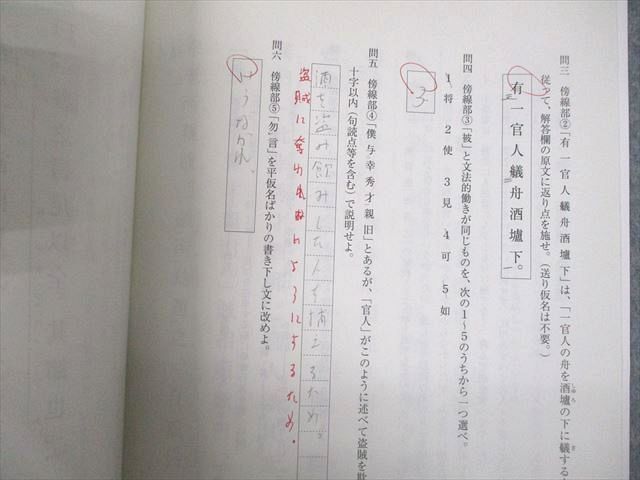 問三 傍線部②「有一官人艤舟酒壚下」は、「一官人の舟を酒壚の下に艤する
従って、解答欄の原文に返り点を施せ。（送り仮名は不要。）
有一官人艤舟酒壚下。
問四 傍線部③「被」と文法的働きが同じものを、次の1〜5のうちから一つ選べ。
1 将 2 使 3 見 4 可 5 如
3
問五 傍線部④「僕与幸秀才親旧」とあるが、「官人」がこのように述べて盗賊を
十字以内（句読点等を含む）で説明せよ。
酒を盗み飲みした人を捕えるため。
盗賊に奪われぬようにするため。
問六 傍線部⑤「勿言」を平仮名ばかりの書き下し文に改めよ。
いうなかれ。